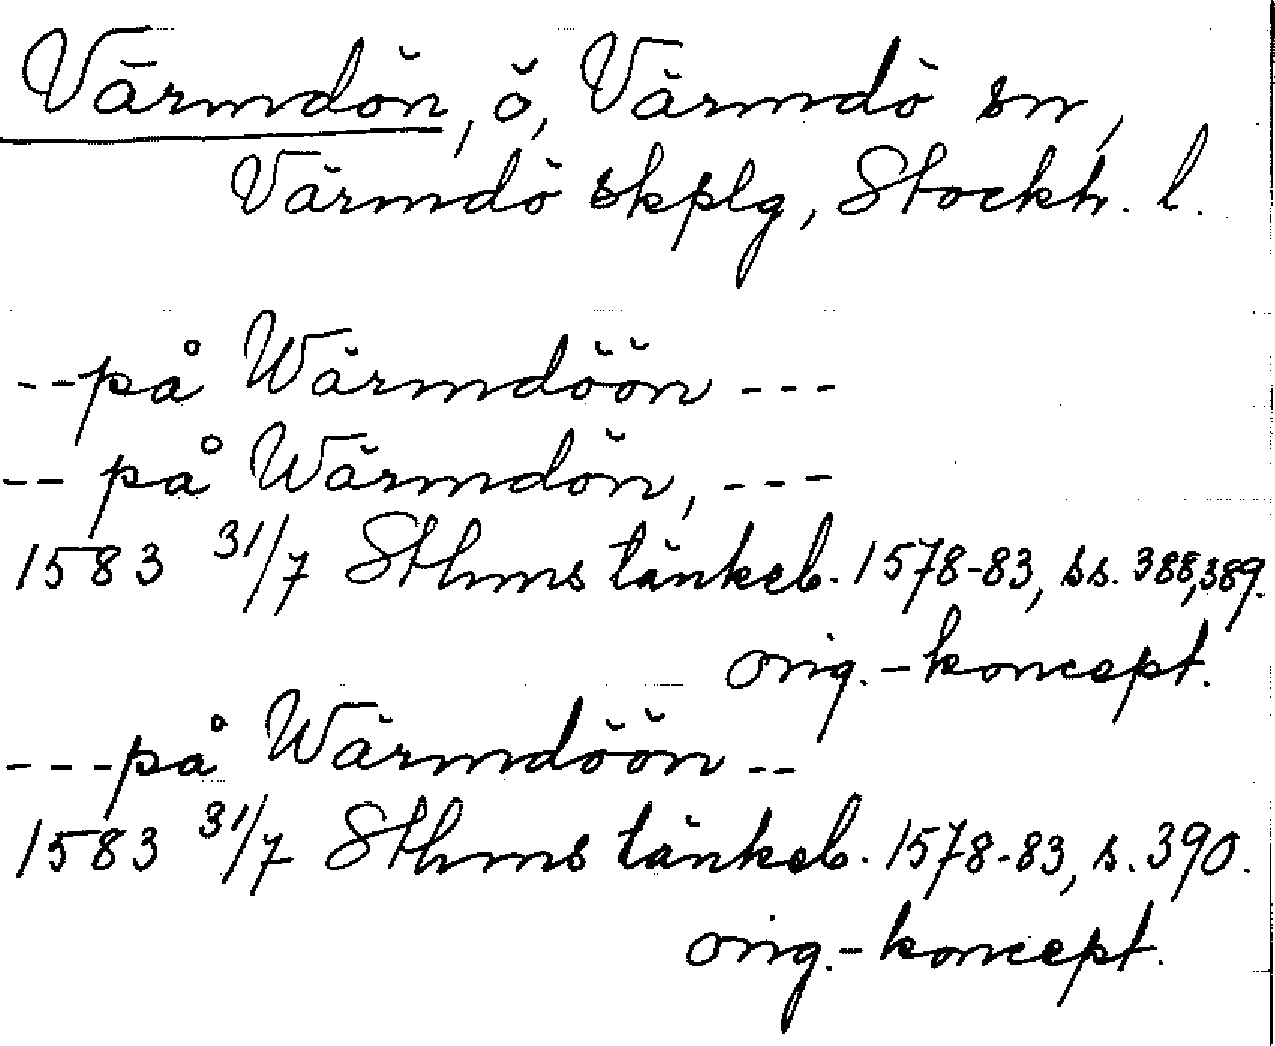 Värmdön, ö, Värmdö sn,
Värmdö skplg, Stockh. l.
--på Wärmdöön ---
-- på Wärmdön, ---
1583 31/7 Sthms tänkeb. 1578-83, ss. 388,389.
orig.-koncept.
---på Wärmdöön --
1583 31/7 Sthms tänkeb. 1578-83, s. 390.
orig.-koncept.